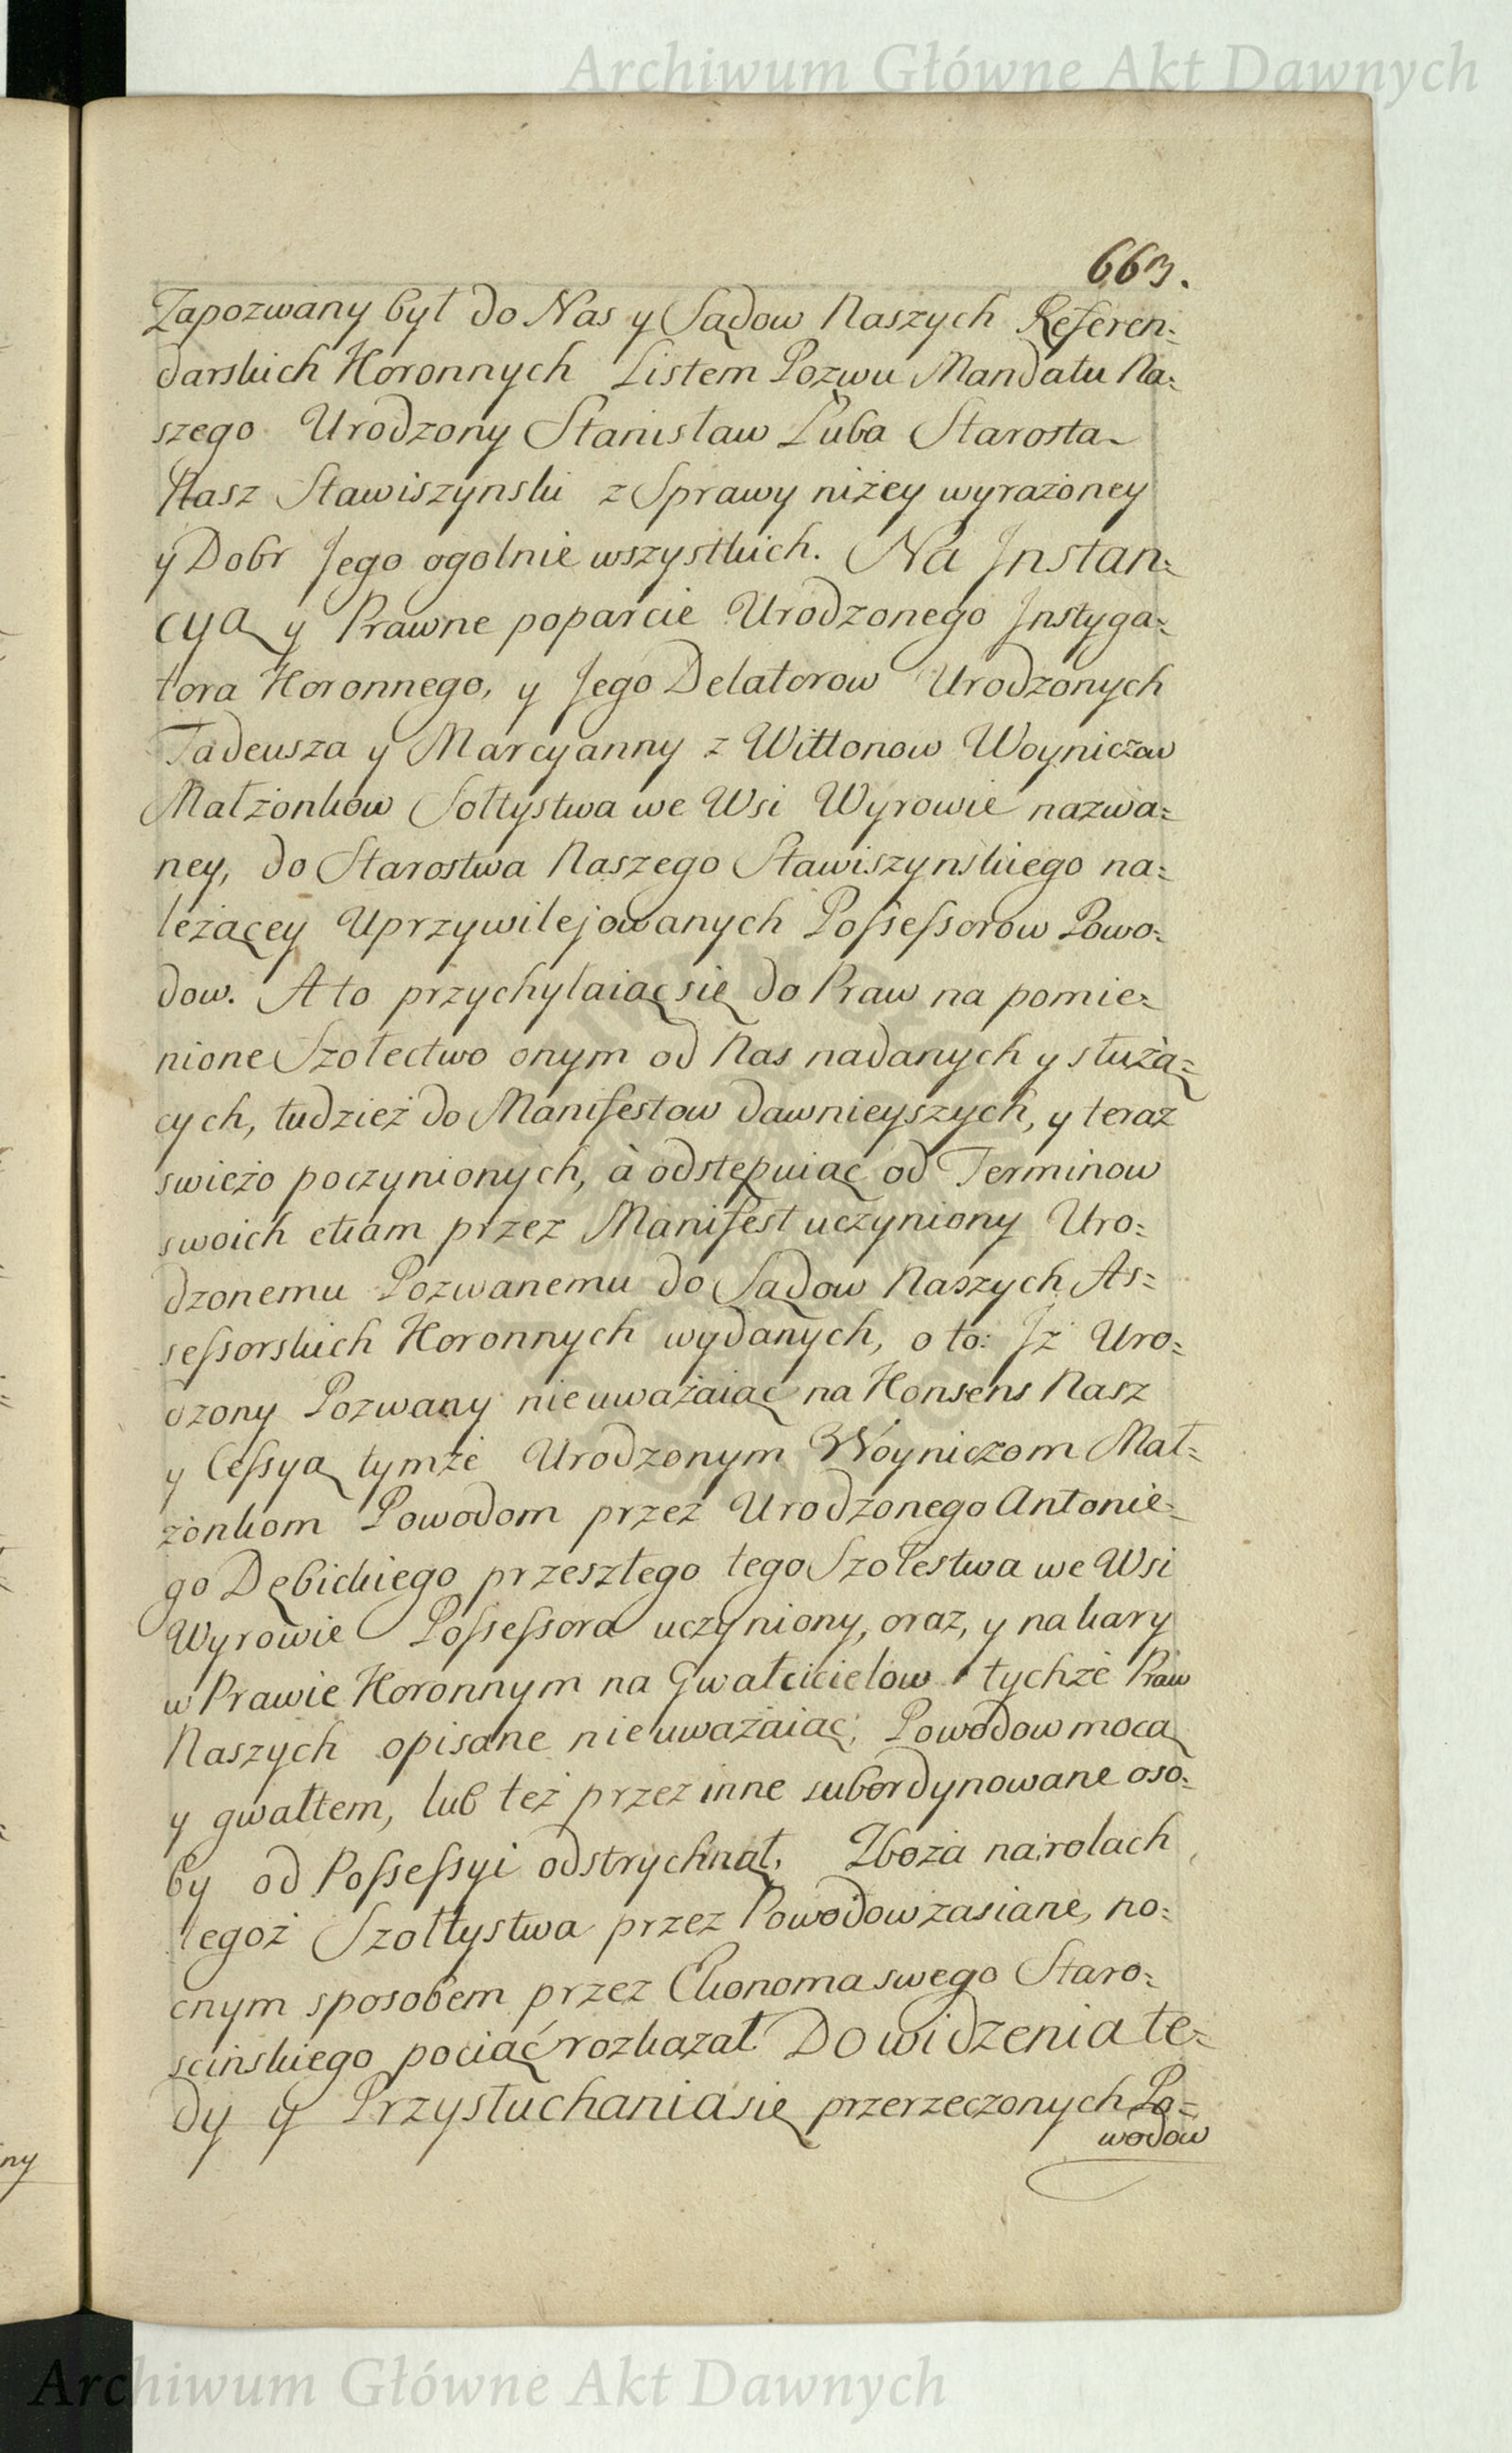 Archiwum Główne Akt Dawnych
663.
Zapozwany był do Nas y Sądow Naszych Referen=
darskich Koronnych Listem Pozwu Mandatu Na=
szego Urodzony Stanisław Luba Starosta
Nasz Stawiszynski z Sprawy niżey wyrażoney
y Dobr Jego ogolnie wszystkich. Na Jnstan=
cyą y Prawne poparcie Urodzonego Jnstyga=
tora Koronnego, y Jego Delatorow Urodzonych
Tadeusza y Marcyanny z Wittonow Woyniczow
Małżonkow Sołtystwa we Wsi Wyrowie nazwa=
ney, do Starostwa Naszego Stawiszynskiego na=
leżącey Uprzywilejowanych Possessorow Powo=
dow. A to przychylaiąc się do Praw na pomie=
nione Szołectwo onym od Nas nadanych y służą=
cych, tudzież do Manifestow dawnieyszych, y teraz
swieżo poczynionych, à odstępuiąc od Terminow
swoich etiam przez Manifest uczyniony Uro=
dzonemu Pozwanemu do Sądow Naszych As=
sessorskich Koronnych wydanych, o to: Jż Uro=
dzony Pozwany nieuważaiąc na Konsens Nasz
y Cessyą tymże Urodzonym Woyniczom Mał=
żonkom Powodom przez Urodzonego Antonie=
go Dębickiego przeszłego tego Szołestwa we Wsi
Wyrowie Possessora uczyniony, oraz, y na kary
w Prawie Koronnym na Gwałcicielow tychże Praw
Naszych opisane nieuważaiąc; Powodow mocą
y gwałtem, lub też przez inne subordynowane oso=
by od Possessyi odstrychnął, Zboża na rolach
tegoż Szołtystwa przez Powodow zasiane, no=
cnym sposobem przez Ekonoma swego Staro=
scińskiego pociąć rozkazał Do widzenia te=
dy y Przysłuchania się przerzeczonych Po=
wodow
ny
Archiwum Główne Akt Dawnych